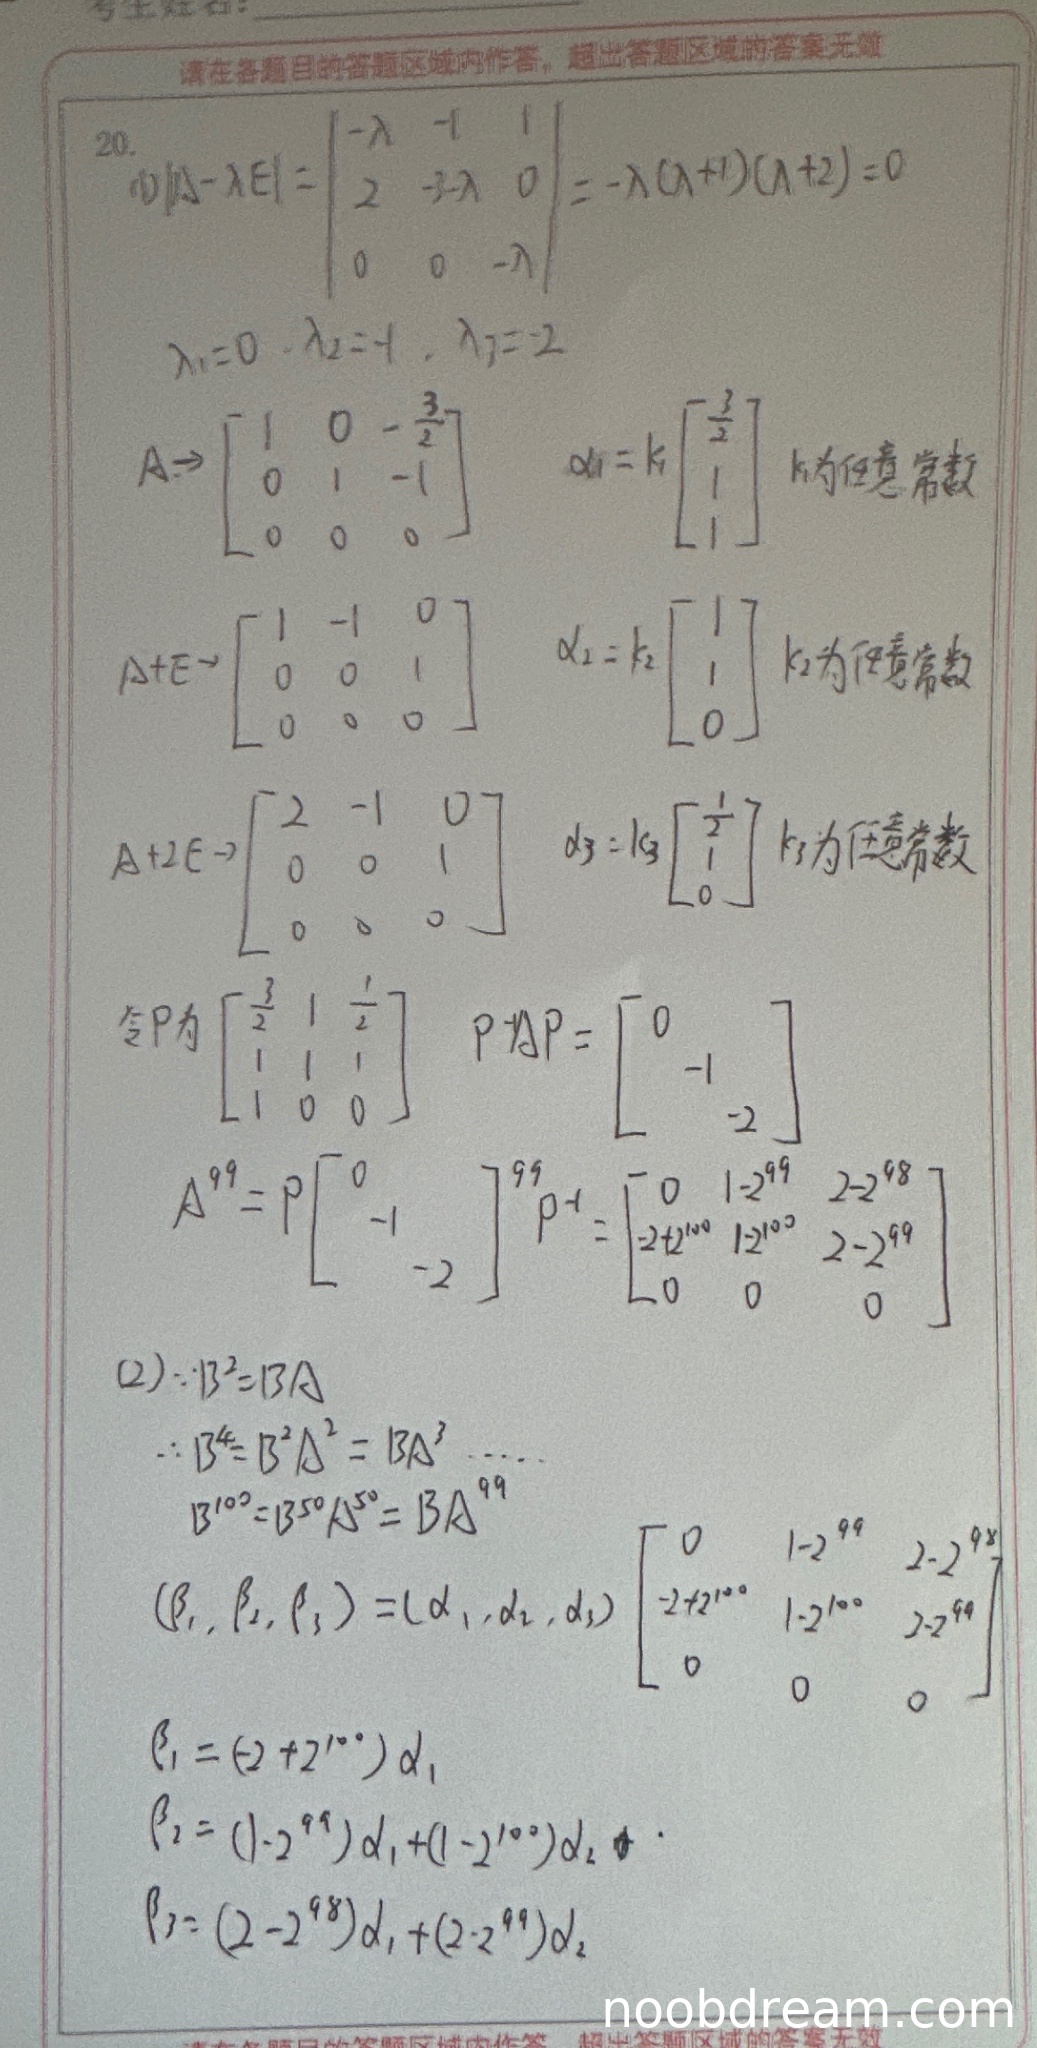 考生姓名:
请在各题目的答题区域内作答，超出答题区域的答案无效
20.
(1)|A-λE| = | -λ -1 1 ; 2 -3-λ 0 ; 0 0 -λ | = -λ(λ+1)(λ+2)=0
λ1=0 . λ2=-1 , λ3=-2
A→ [ 1 0 -3/2 ; 0 1 -1 ; 0 0 0 ] α1=k1 [ 3/2 ; 1 ; 1 ] k1为任意常数
A+E→ [ 1 -1 0 ; 0 0 1 ; 0 0 0 ] α2=k2 [ 1 ; 1 ; 0 ] k2为任意常数
A+2E→ [ 2 -1 0 ; 0 0 1 ; 0 0 0 ] α3=k3 [ 1/2 ; 1 ; 0 ] k3为任意常数
令P为 [ 3/2 1 1/2 ; 1 1 1 ; 1 0 0 ] P^-1AP= [ 0 ; -1 ; -2 ]
A^99=P [ 0 ; -1 ; -2 ]^99 P^-1 = [ 0 1-2^99 2-2^98 ; -2+2^100 1-2^100 2-2^99 ; 0 0 0 ]
(2)∵B^2=BA
∴B^4=B^2A^2=BA^3 ……
B^100=B^50A^50=BA^99
(β1, β2, β3)=(α1,α2,α3) [ 0 1-2^99 2-2^98 ; -2+2^100 1-2^100 2-2^99 ; 0 0 0 ]
β1=(-2+2^100)α1
β2=(1-2^99)α1+(1-2^100)α2 .
β3=(2-2^98)α1+(2-2^99)α2
noobdream.com
请在各题目的答题区域内作答，超出答题区域的答案无效